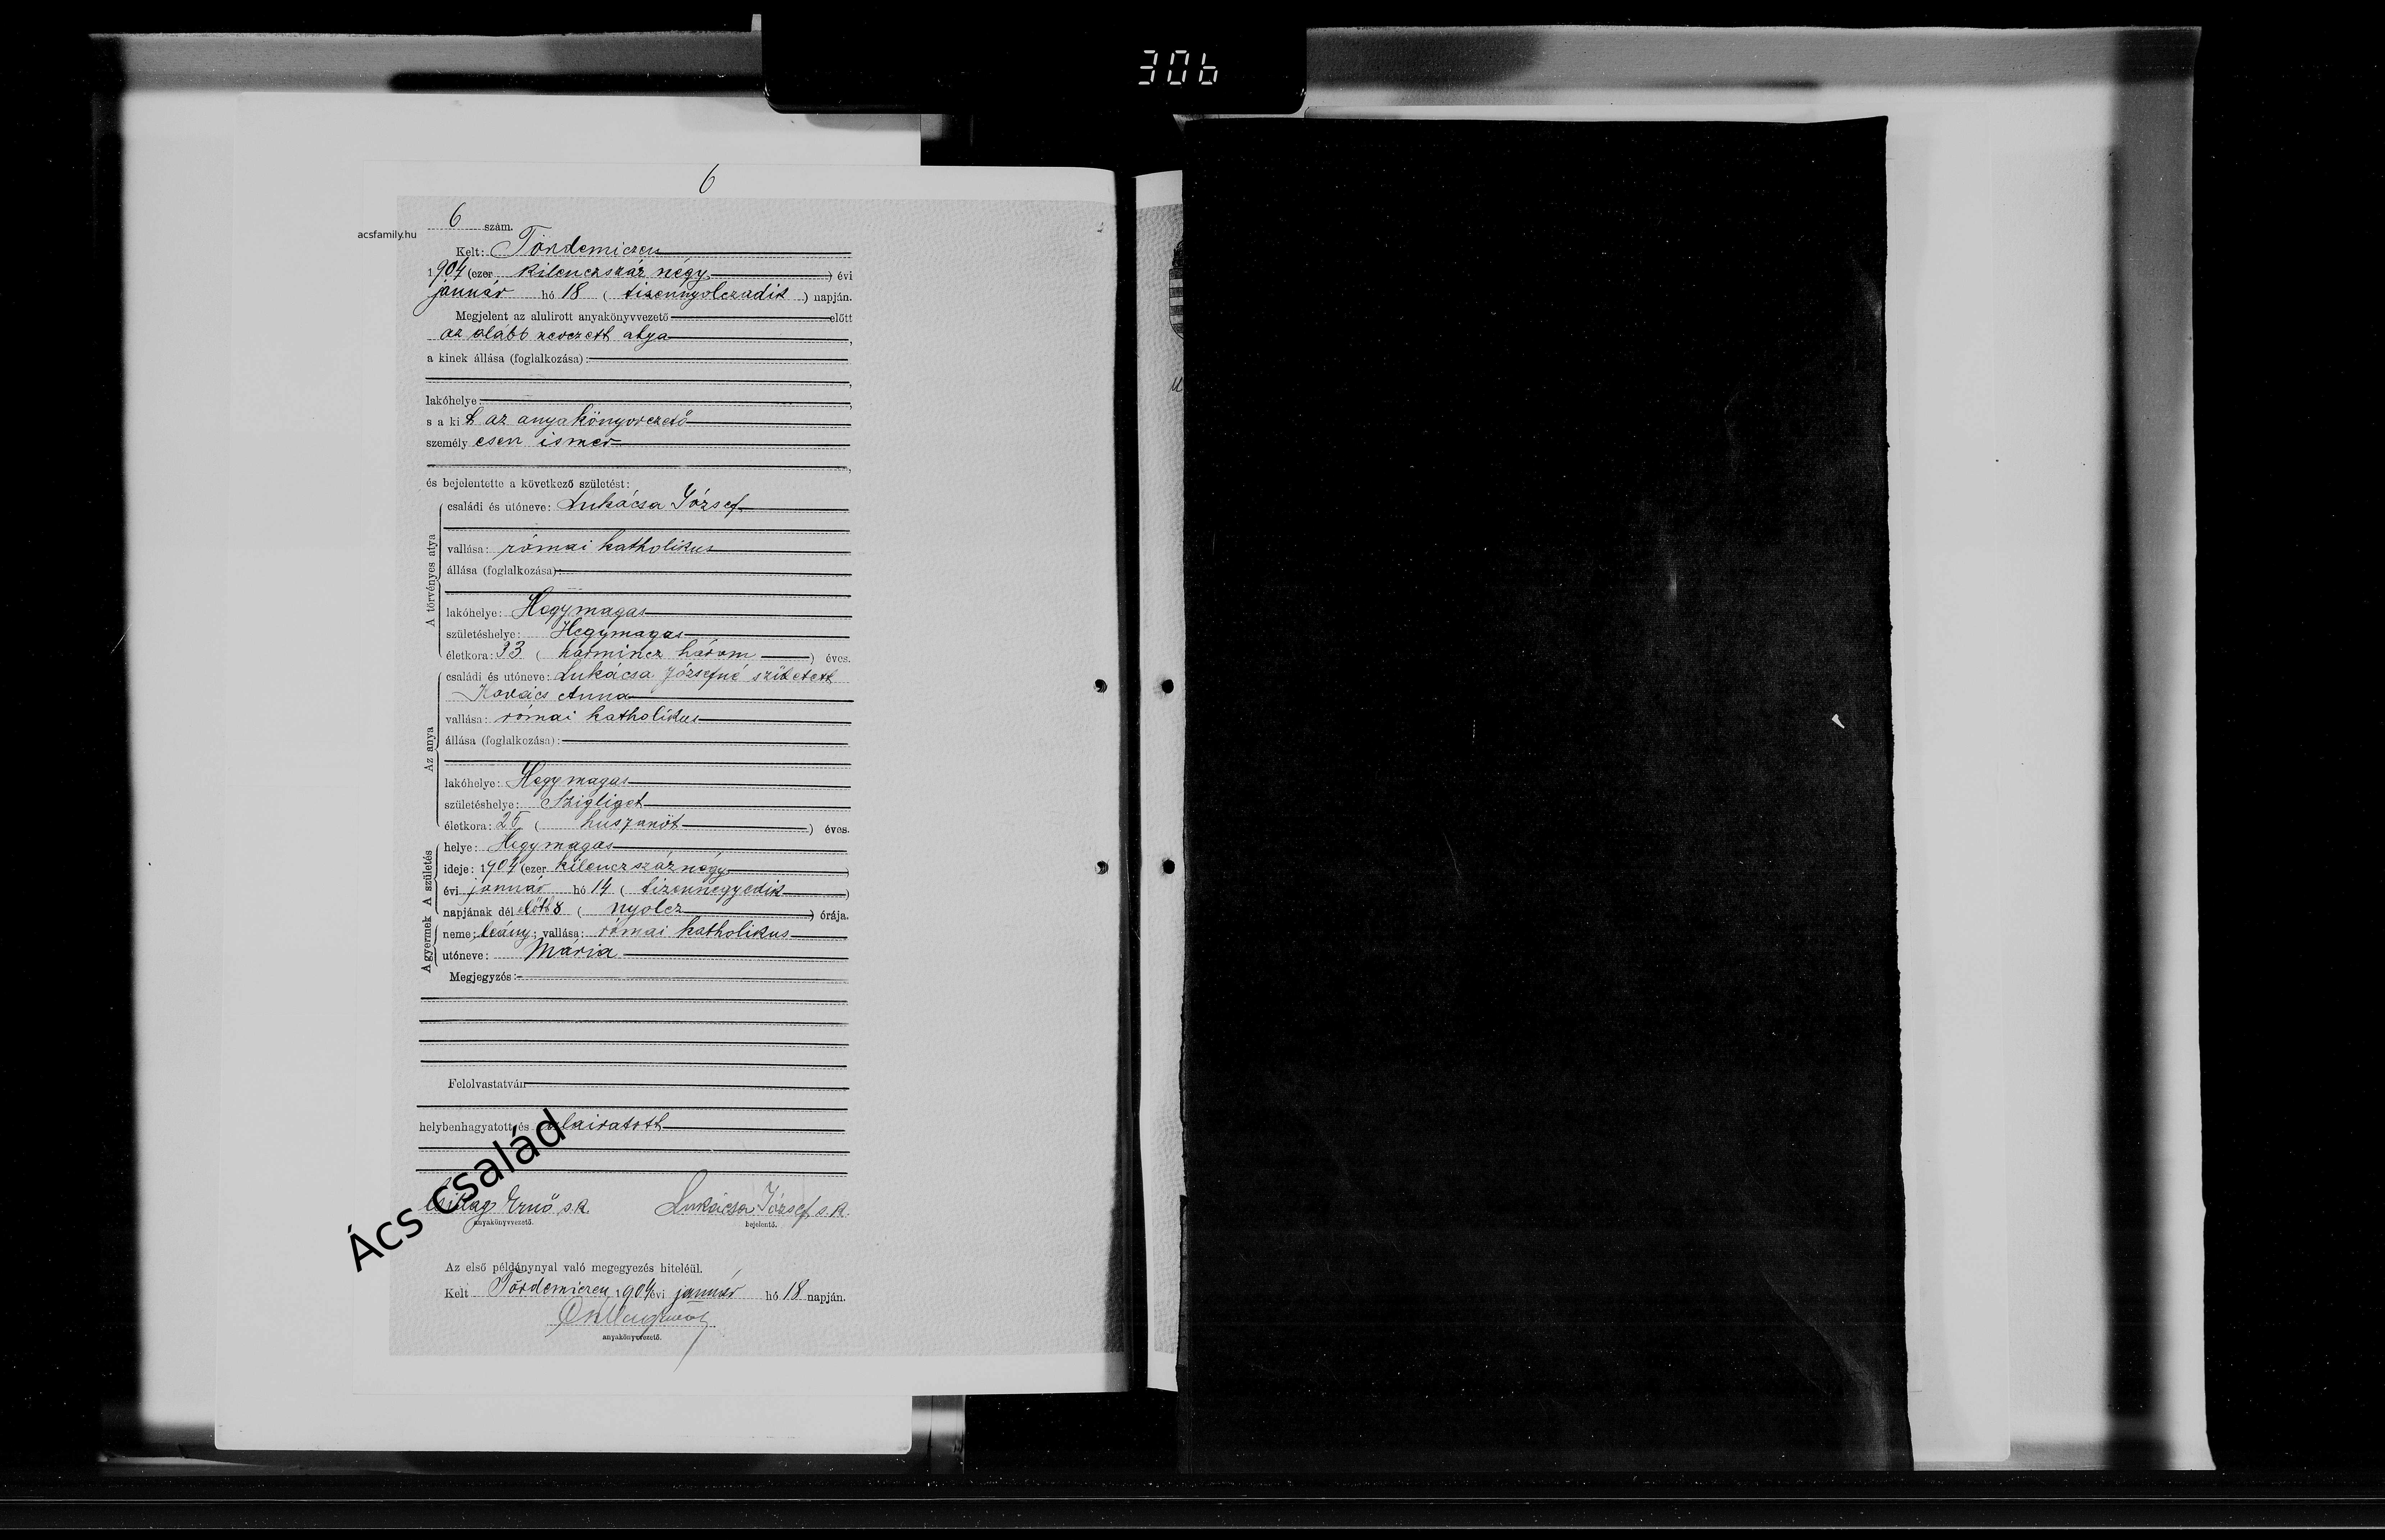 306
6
6 szám.
acsfamily.hu
Kelt: Tördemiczen
1904 (ezer kilenczszáz négy ) évi
január hó 18 ( tizennyolczadik ) napján.
Megjelent az alulirott anyakönyvvezető előtt
az alább nevezett atya ,
a kinek állása (foglalkozása):
lakóhelye:
s a kit az anyakönyvvezető
személyesen ismer
és bejelentette a következő születést:
A törvényes atya
családi és utóneve: Lukácsa József
vallása: római katholikus
állása (foglalkozása):
lakóhelye: Hegymagas
születéshelye: Hegymagas
életkora: 33 ( harmincz három ) éves.
Az anya
családi és utóneve: Lukácsa Józsefné született
Kovács Anna
vallása: római katholikus
állása (foglalkozása):
lakóhelye: Hegymagas
születéshelye: Szigliget
életkora: 25 ( huszonöt ) éves.
A születés
helye: Hegymagas
ideje: 1904 (ezer kilenczszáz négy )
évi január hó 14 ( tizennegyedik )
napjának dél előtt 8 ( nyolcz ) órája.
A gyermek
neme: leány; vallása: római katholikus
utóneve: Mária
Megjegyzés:
Felolvastatván
helybenhagyatott és aláiratott
Ács család
Csillag Ernő s.k. Lukácsa József s.k.
anyakönyvvezető. bejelentő.
Az első példánynyal való megegyezés hiteléül.
Kelt Tördemiczen 1904 évi január hó 18 napján.
anyakönyvvezető.